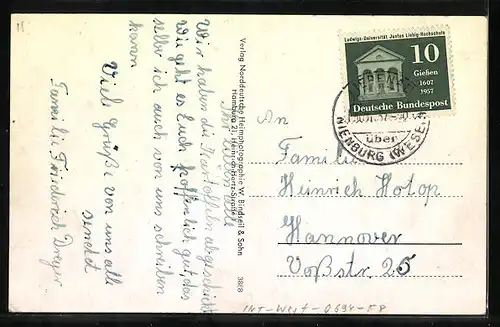 Ihr lieben alle
Wir haben die Kartoffeln abgeschickt
wie geht es Euch hoffentlich gut, das
selbe ich auch von uns schreiben
kann
Viele Grüße von uns alle
sendet
Familie Friederich Dreyer
Verlag Norddeutsche Heimphotographie W. Bindseil & Sohn
Hamburg 21, Heinrich-Hertz-Straße
3828
Ludwigs-Universität Justus Liebig-Hochschule
10
Gießen
1607
1957
Deutsche Bundespost
über
NIENBURG (WESER)
An
Familie
Heinrich Hotop
Hannover
Voßstr. 25